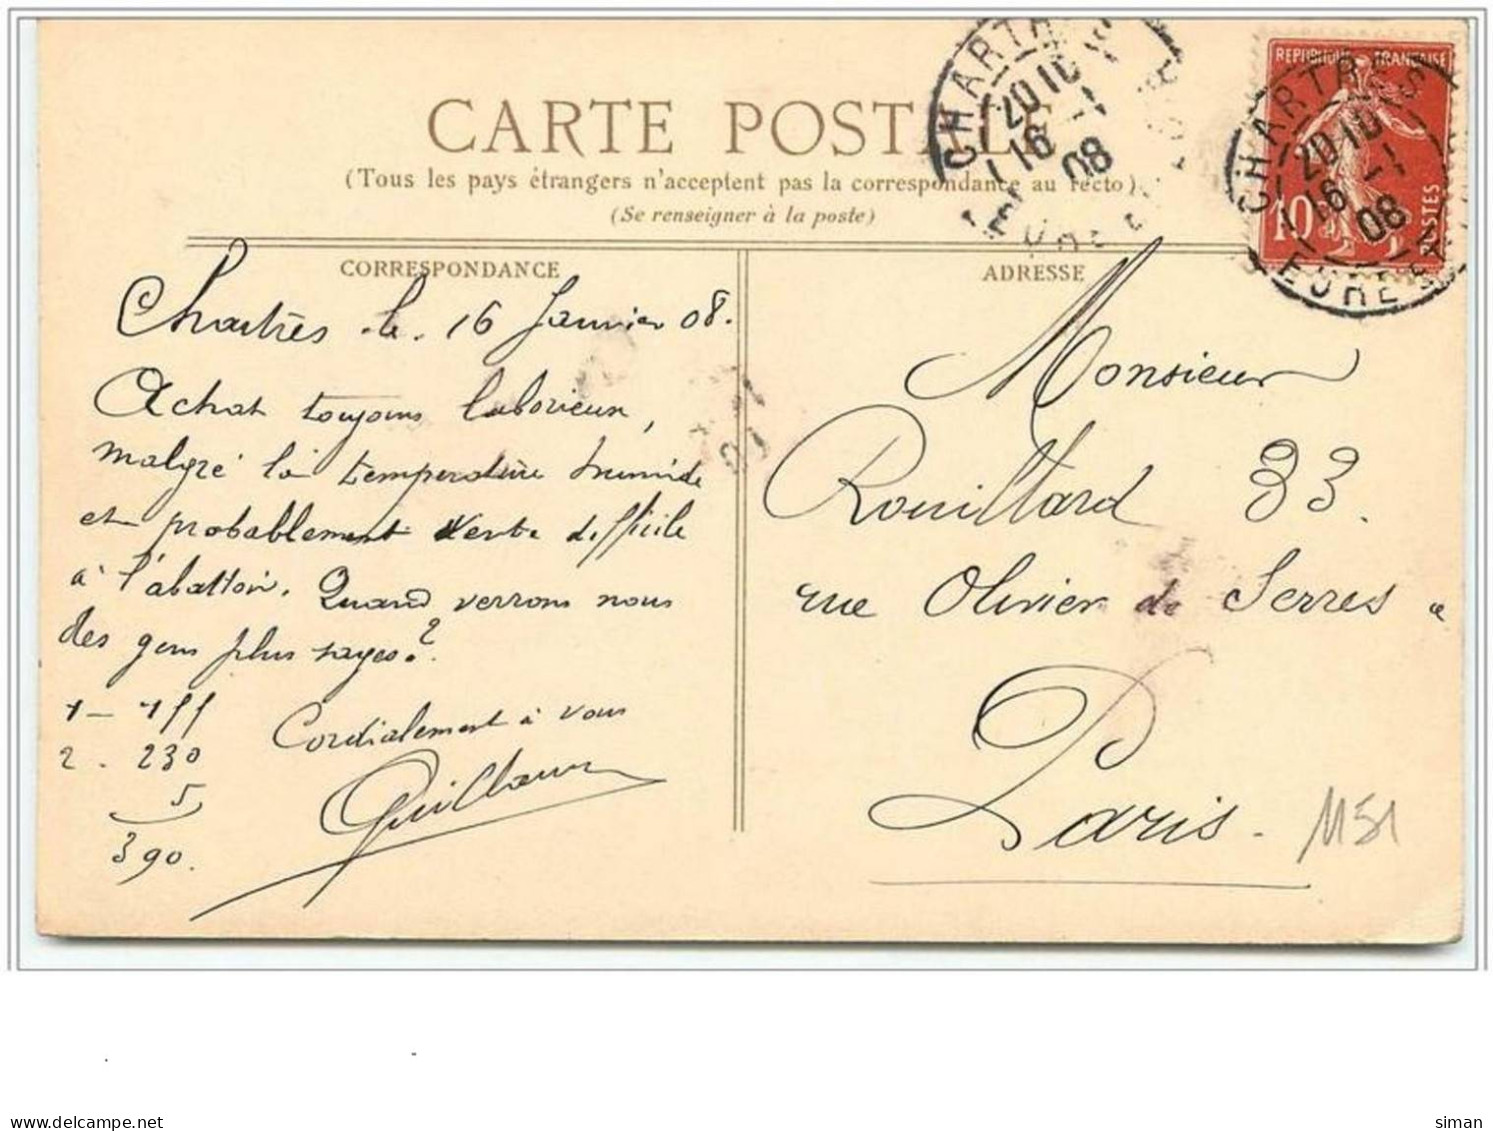 CARTE POSTALE
(Tous les pays étrangers n'acceptent pas la correspondance au recto)
(Se renseigner à la poste)
CORRESPONDANCE
Chartres le 16 Janvier 08.
Achat toujours laborieux,
malgré la température humide
et probablement vente difficile
à l'abattoir. Quand verrons nous
des gens plus sages?
2 . 230
5
390.
Cordialement à vous
Guillaume
ADRESSE
Monsieur
Rouillard 33
rue Olivier de Serres
Paris
1151
REPUBLIQUE FRANÇAISE
10 POSTES
CHARTRES
20 10
16 -1
08
EURE ET
CHARTRES
20 10
16 -1
08
EURE
siman